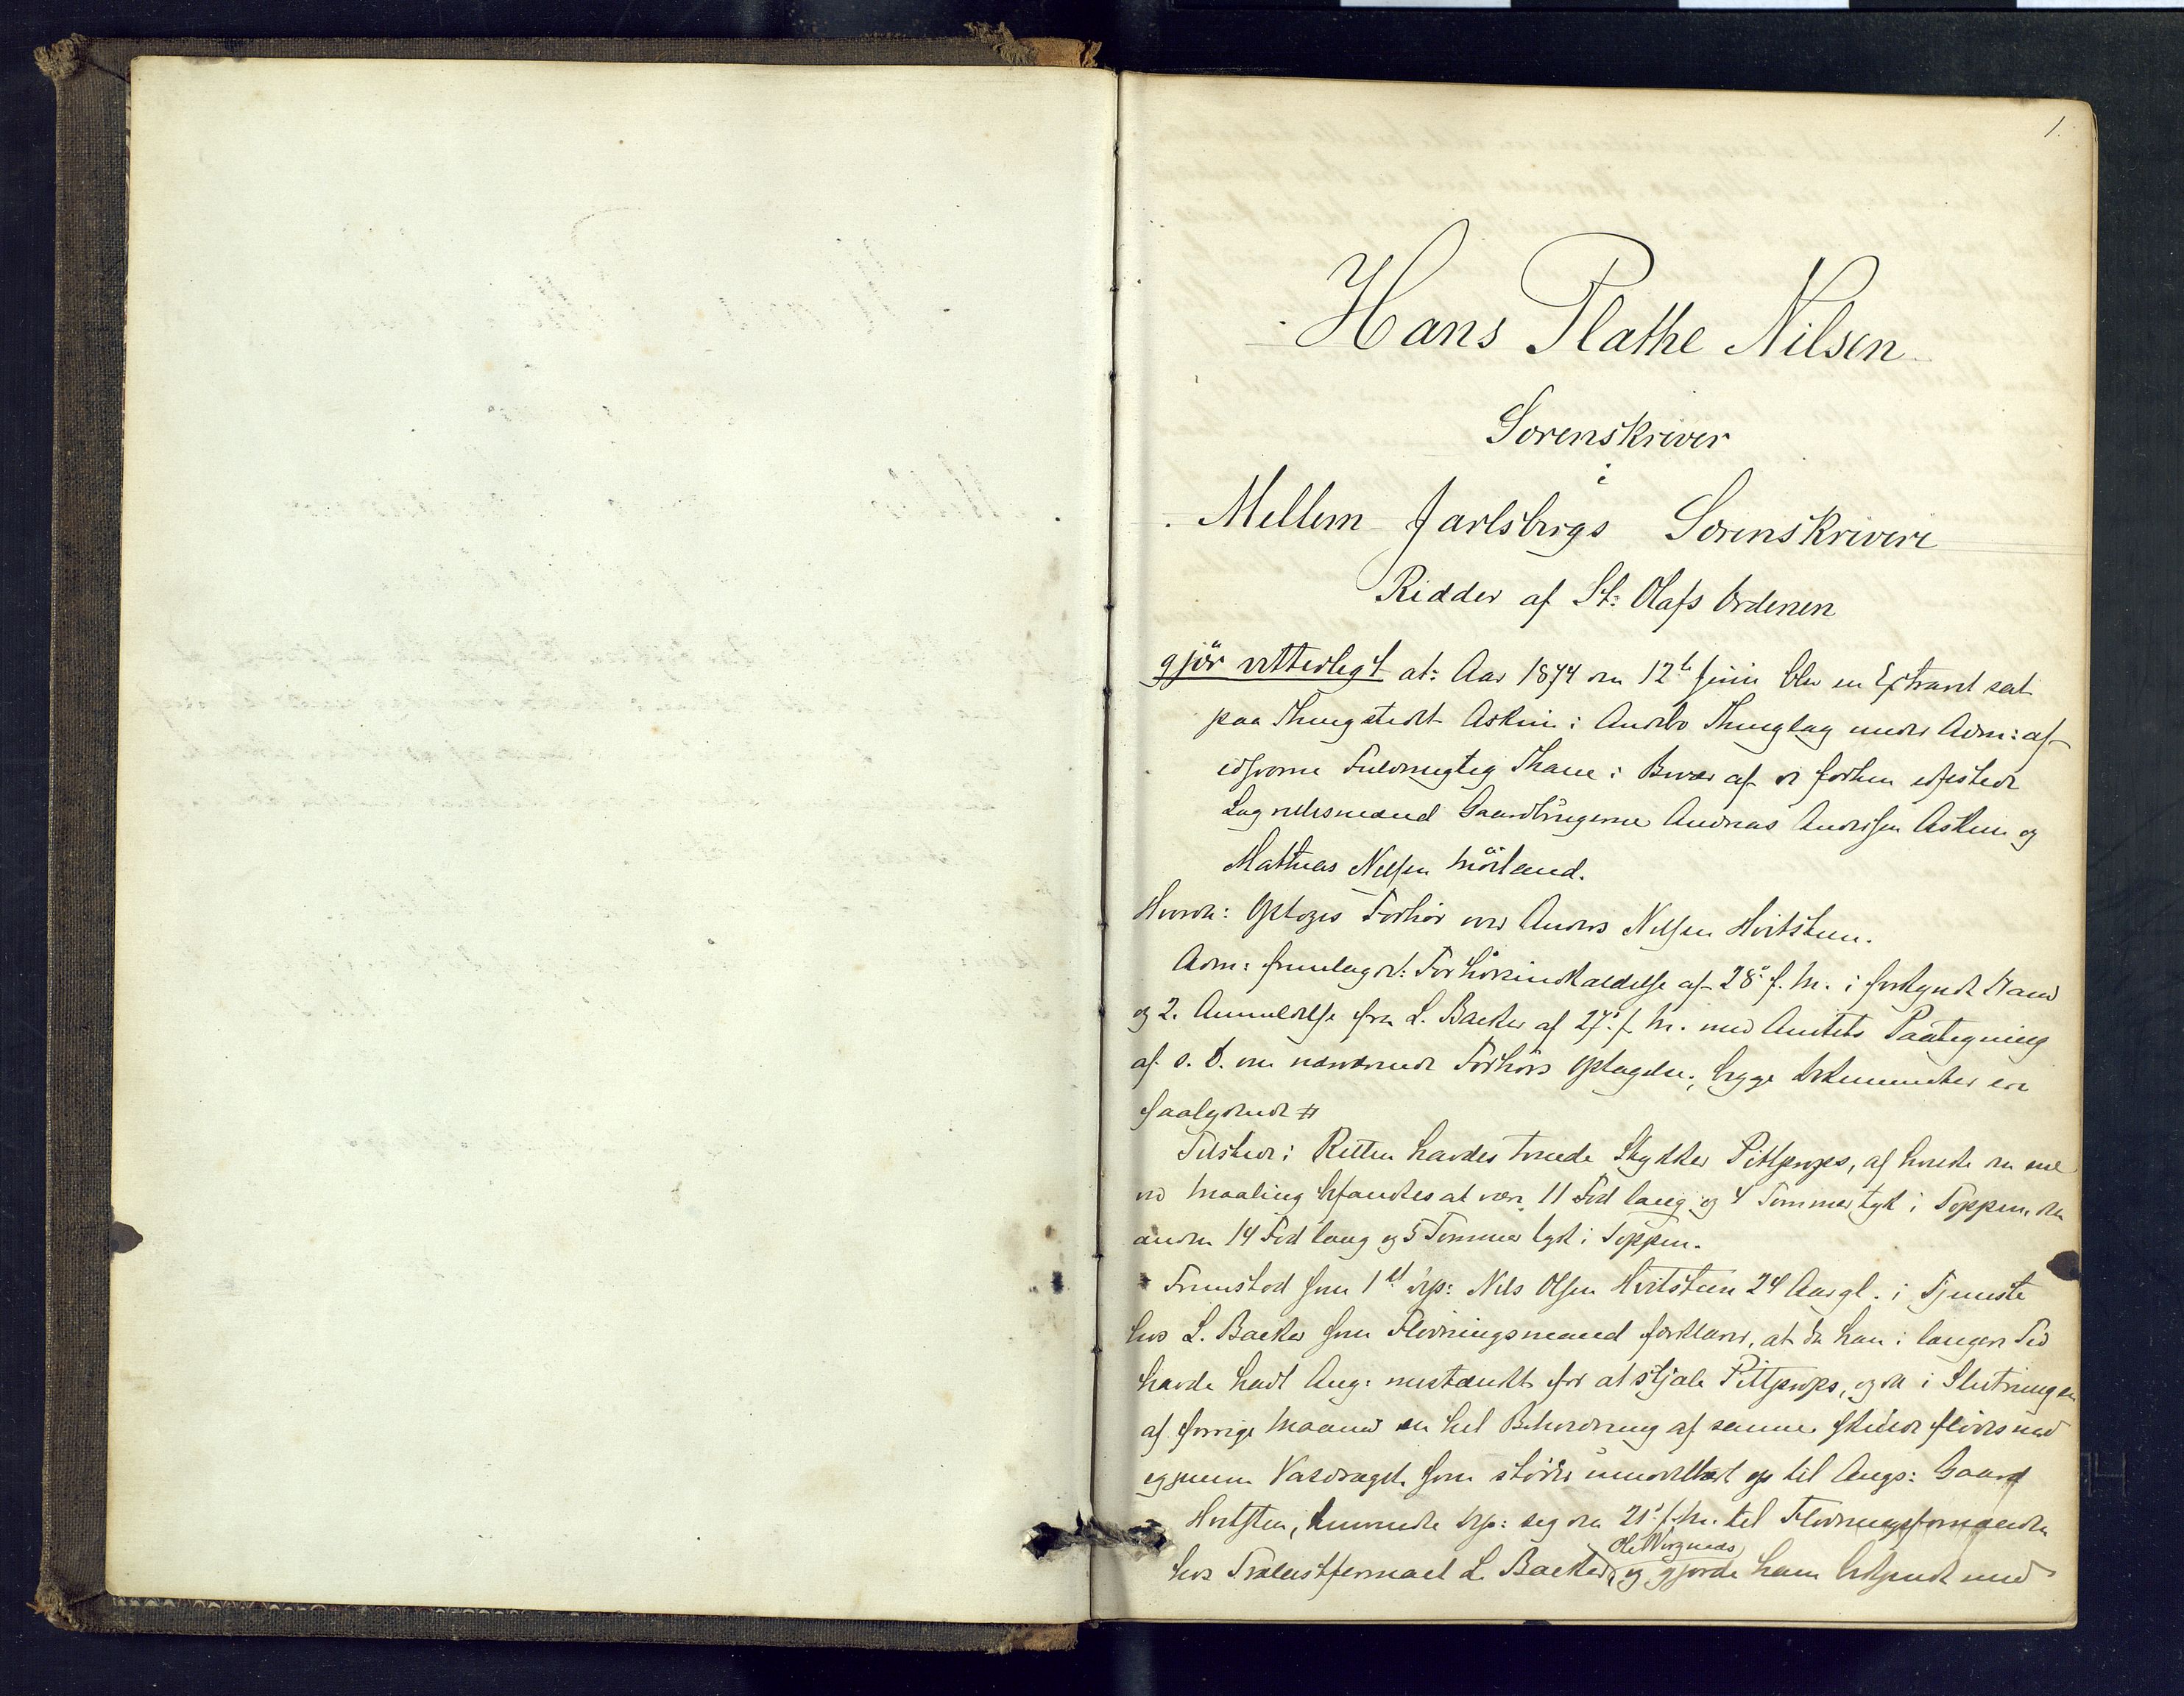 1.
Hans Plathe Nilsen
Sorenskriver
i
Mellem Jarlsbergs Sorenskriveri
Ridder af St: Olafs Ordenen
gjör vitterligt at: Aar 1874 den 12te Juni blev en Extraret sat
paa Thingstedet Askim i Andebo Thinglag under Adm: af
edsvorne Fuldmægtig Thaue i Bivær af de forhen edfæstede
Lagrettesmænd Gaardbrugerne Andreas Andersen Askim og
Mathias Nilsen Mörland.
Hvorda: Optoges Forhör over Anders Nilsen Hvitsteen.
Adm: fremlagde: Forhörsindkaldelse af 28de f. M. i forkyndt Stand
og 2. Anmeldelse fra L. Backer af 27de f. M. med Amtets Paategning
af s. D. om nærværende Forhörs Optagelse; begge Dokumenter ere
saalydende #
Tilstede i Retten havdes tvende Stykker Pittprops, af hvilke den ene
ved Maaling befandtes at være 11 Fod lang og 4 Tommer tyk i Toppen, den
anden 14 Fod lang og 5 Tommer tyk i Toppen.
Fremstod som 1st Dep: Nils Olsen Hvitsteen 24 Aar gl. i Tjeneste
hos L. Backer som Flödningsmand forklarer, at da han i längere Tid
havde havt Ang: mistænkt for at stjæle Pittprops, og da i Slutningen
af forrige Maaned en hel Beholdning af samme skulde flödes ned
igjennem Vasdraget som stöder umiddelbart op til Angs: Gaard
Hvitsten, henvendte Dep: seg den 21de f. M. til Flödningsformanden
Ole Virgenæs
hos Trælastfirmaet L. Backer, og gjorde ham bekjendt med